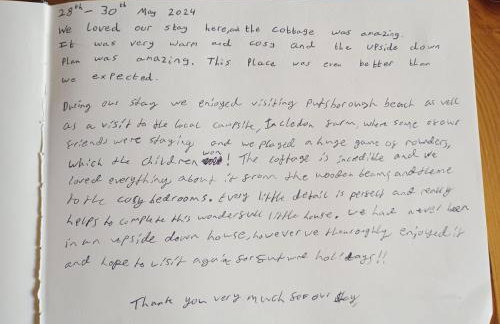 28th - 30th May 2024
We loved our stay here, and the cottage was amazing.
It was very warm and cosy and the upside down
plan was amazing. This place was even better than
we expected.
During our stay we enjoyed visiting Putsborough beach as well
as a visit to the local campsite, Incledon farm, where some of our
friends were staying and we played a huge game of rounders,
which the children won! The cottage is incredible and we
loved everything about it from the wooden beams and theme
to the cosy bedrooms. Every little detail is perfect and really
helps to complete this wonderfull little house. We had never been
in an upside down house, however we thoroughly enjoyed it
and hope to visit again for future holidays!!
Thank you very much for our stay